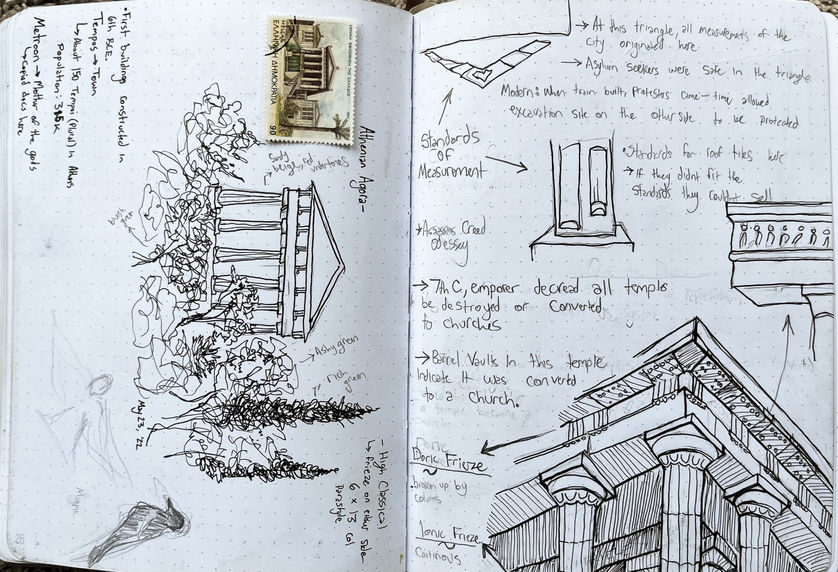 • First buildings constructed in
6th BCE.
Tempos → Town
↳ About 150 Tempi (Plural) in Athens
Population: 35K
Metroon → Mother of the gods
↳ copied docs here
ΕΛΛΗΝΙΚΗ ΔΗΜΟΚΡΑΤΙΑ
90
Athenian Agora -
Sandy
beige, red undertones
bush
green
→ Ashy green
rich
green
May 23, '22
- High Classical
↳ Frieze on either side
6 x 13 col
Peristyle
28
→ At this triangle, all measurements of the
city originated here.
→ Asylum seekers were safe in the triangle
Modern: when train built, protestos came - time allowed
excavation site on the other side to be protected
Standards
of
Measurement
• Standards for roof tiles here
→ If they didnt fit the
Standards they couldnt sell
Assassins Creed
odessey
→ 7th C, emporer decread all temples
be destroyed or converted
to churches
→ Barrel Vaults in this temple
indicate it was converted
to church.
Doric Frieze
• broken up by
colums
Ionic Frieze
Continous